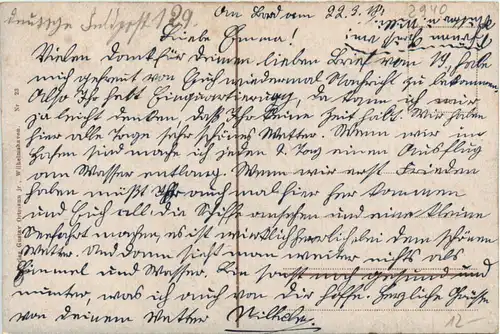 deutsche Feldpost 129.
2940
An Bord am 22.3.
Liebe Emma!
Vielen Dank für Deinen lieben Brief vom 19. habe
mich gefreut von Euch wiedermal Nachricht zu bekommen.
Also Ihr habt Einquartierung, da kann ich mir
ja leicht denken, daß Ihr keine Zeit habt. Wir haben
hier alle Tage sehr schönes Wetter. Wenn wir im
Hafen sind mache ich jeden 2. Tag einen Ausflug
am Wasser entlang. Wenn wir erst Frieden
haben müßt Ihr auch mal hier her kommen
und Euch all die Schiffe ansehen und eine kleine
Seefahrt machen, es ist wirklich herrlich bei dem schönen
Wetter. Und dann sieht man weiter nichts als
Himmel und Wasser. Bin sonst noch gesund und
munter, was ich auch von Dir hoffe. Herzliche Grüße
von deinem Vetter Wilhelm.
Gustav Ottersen jr., Wilhelmshaven. Nr. 23
12.-